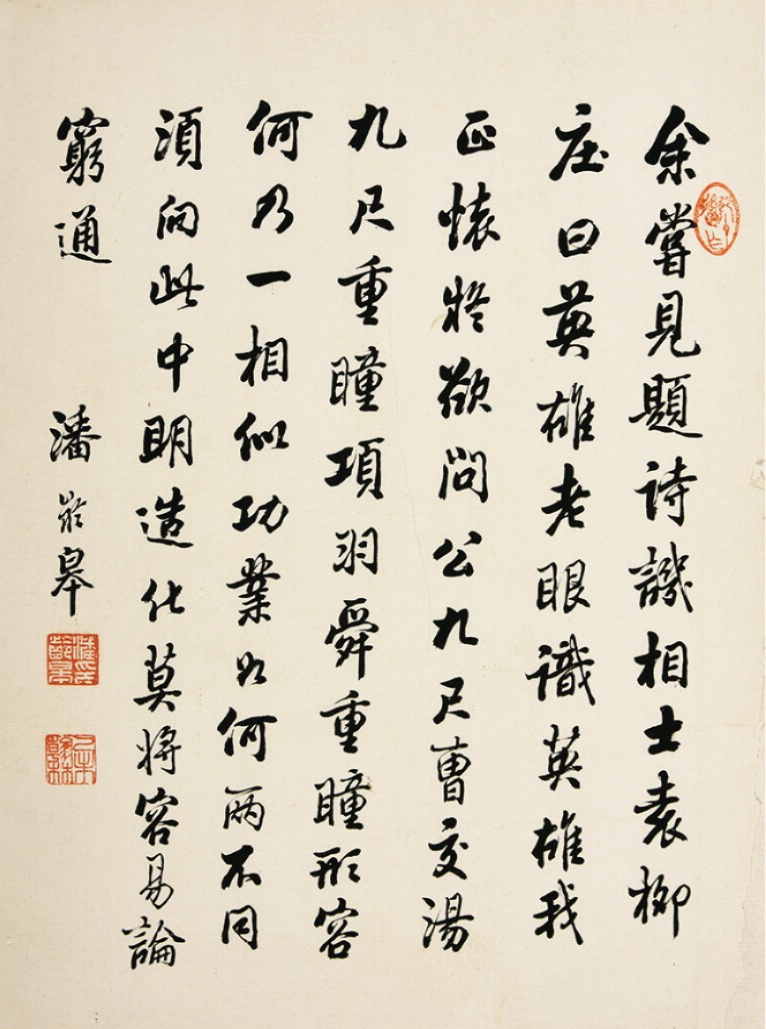 余嘗見題詩譏相士袁柳
庄曰英雄老眼識英雄我
正懐將欲問公九尺曹交湯
九尺重瞳項羽舜重瞳形容
何乃一相似功業如何兩不同
須向此中明造化莫將容易論
窮通
潘齡皋